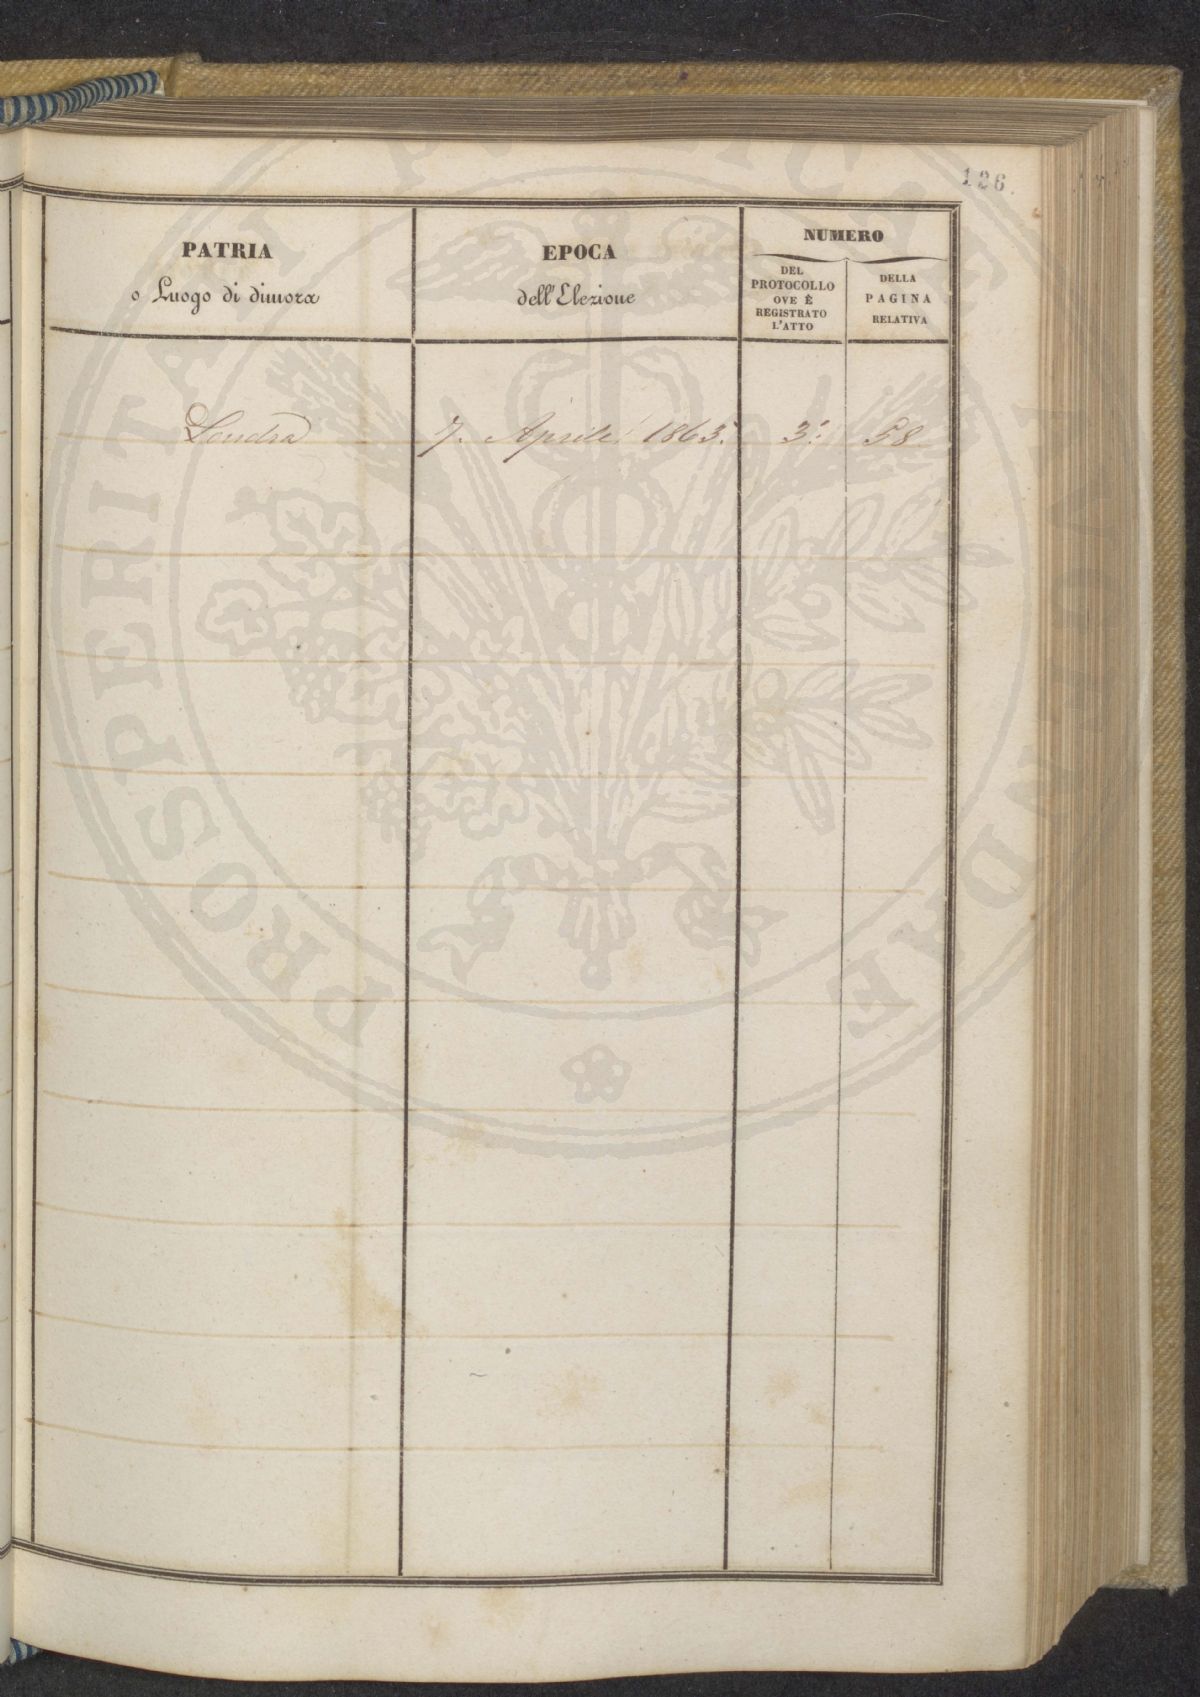 126.
PATRIA
o Luogo di dimora
EPOCA
dell'Elezione
NUMERO
DEL
PROTOCOLLO
OVE È
REGISTRATO
L'ATTO
DELLA
PAGINA
RELATIVA
Londra 7. Aprile 1865. 3º: 58
PROSPERITATI PUBLICAE AUGENDAE